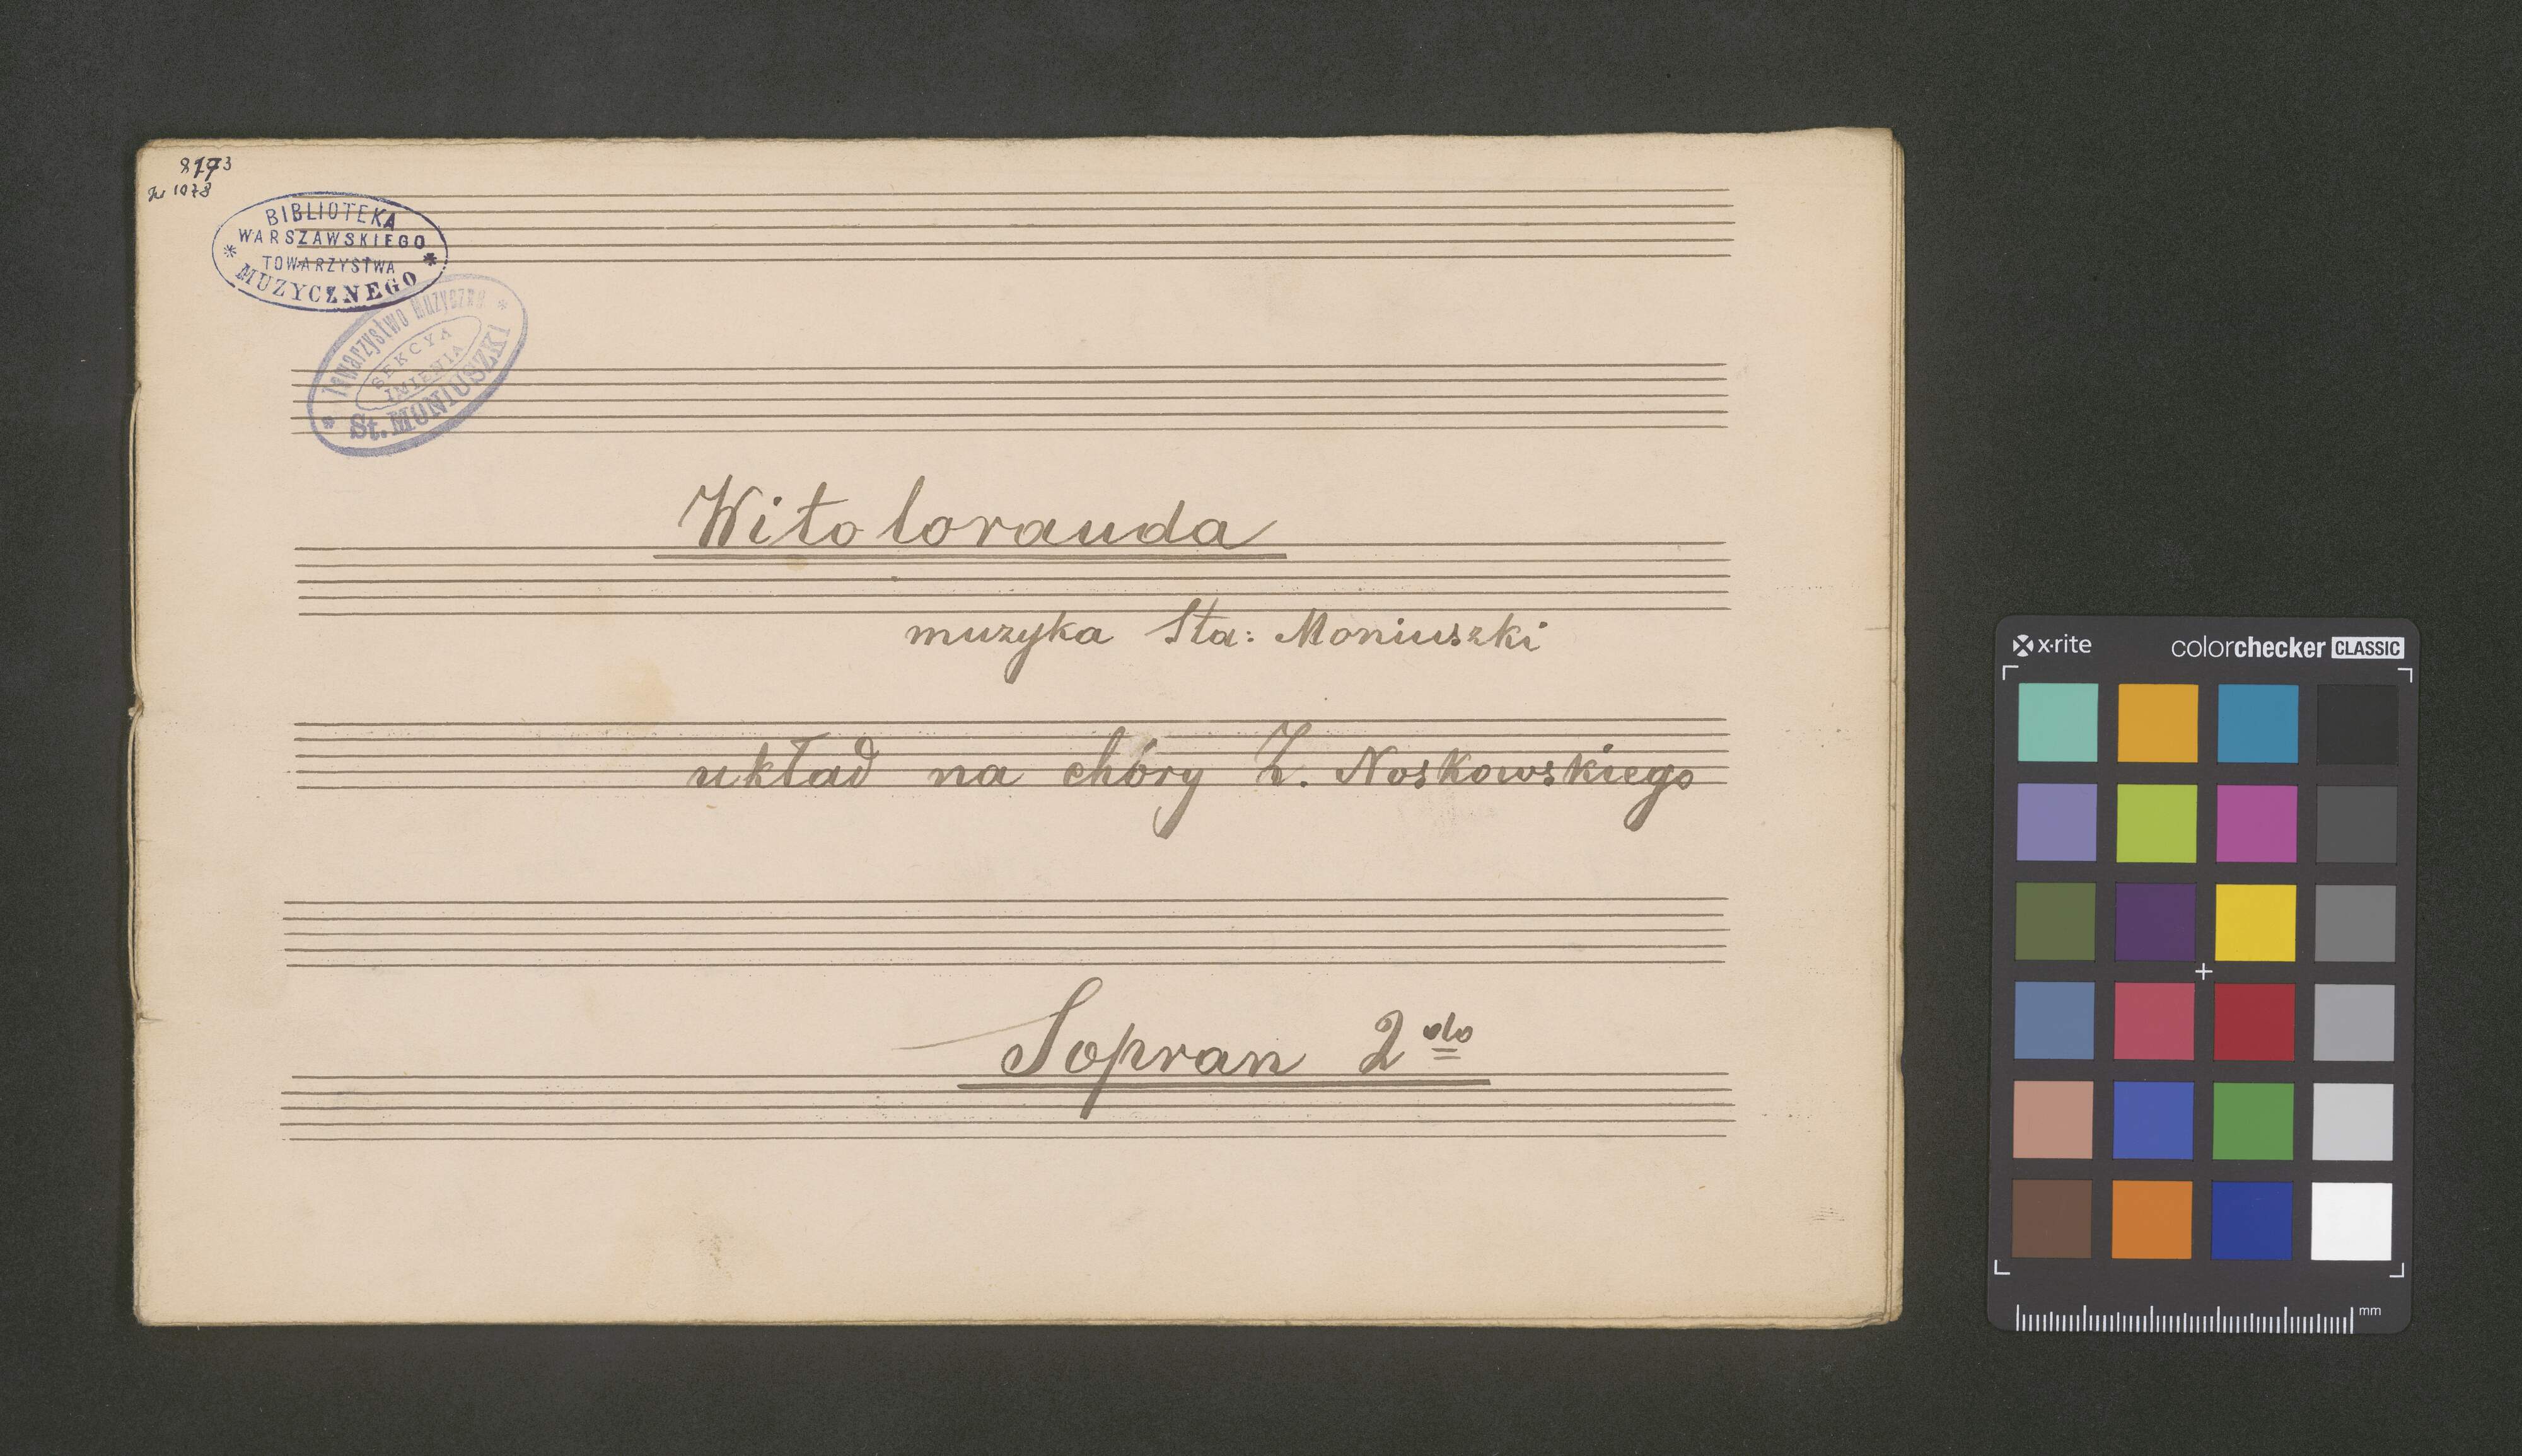 8173
Nr 1073
BIBLIOTEKA
WARSZAWSKIEGO
TOWARZYSTWA
MUZYCZNEGO
Towarzystwo Muzyczne
SEKCYA
IMIENIA
St. MONIUSZKI
Witolorauda
muzyka Sta: Moniuszki
układ na chóry Z. Noskowskiego
Sopran 2do
x·rite colorchecker CLASSIC
mm